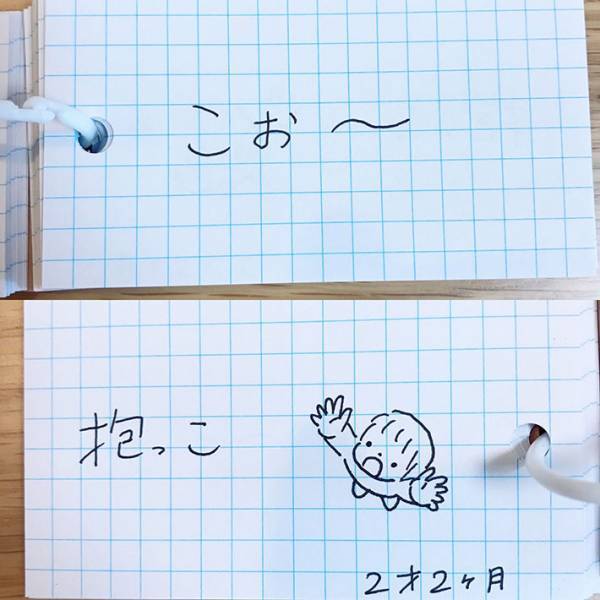 こお〜
抱っこ
2才2ヶ月